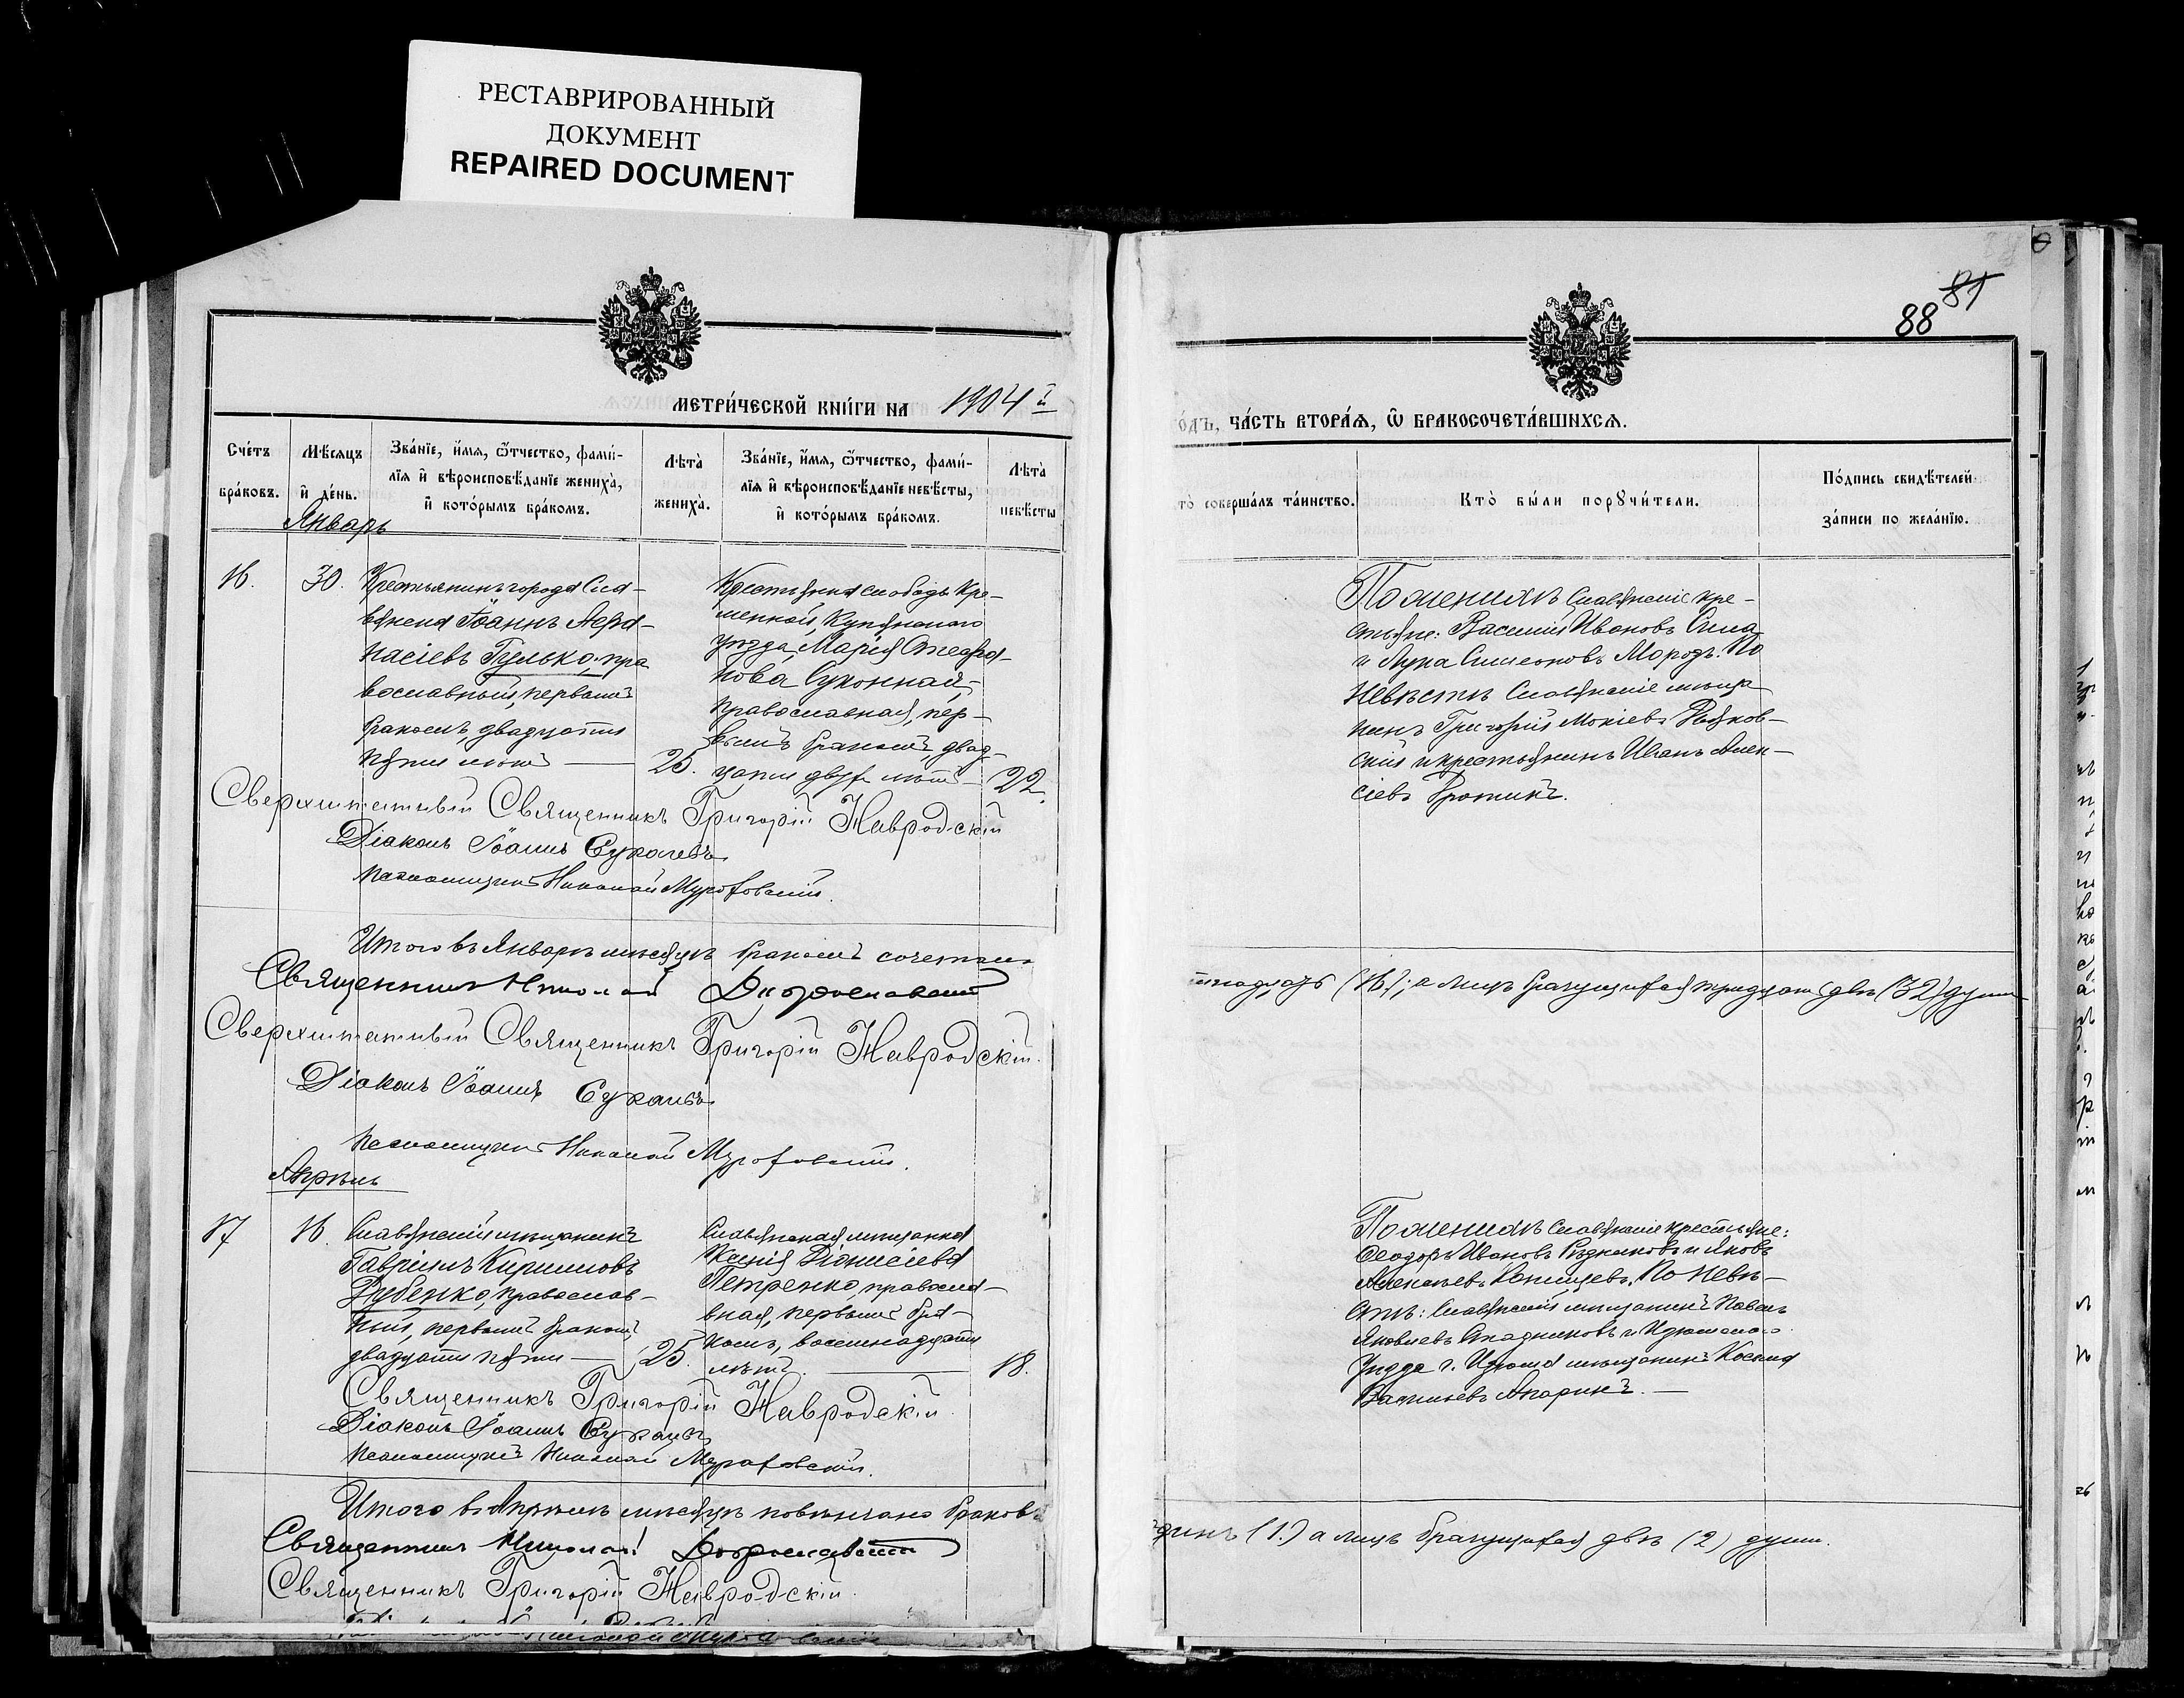 РЕСТАВРИРОВАННЫЙ
ДОКУМЕНТ
REPAIRED DOCUMENT
МЕТРИ́ЧЕСКОЙ КНИ́ГИ НА 1904 й
Счéтъ
брáковъ.
Мѣ́сяцъ
и҆ дéнь.
Звáнїе, и҆́мя, ѻ҆́тчество, фамú-
лїя и҆ вѣроисповѣ́данїе женихà,
и҆ котóрымъ брáкомъ.
Лѣтà
женихà.
Звáнїе, и҆́мя, ѻ҆́тчество, фамú-
лїя и҆ вѣроисповѣ́данїе невѣ́сты,
и҆ котóрымъ брáкомъ.
Лѣтà
невѣ́сты
Январь
16.
30.
Крестьянинъ города Сла-
вянска Іоаннъ Аѳа-
насіевъ Гулько, пра
вославный, первымъ
бракомъ, двадцати
пяти лѣтъ — 25.
Крестьянка слободы Кре-
менной, Купянскаго
уѣзда, Марія Стефа-
нова Сухонная,
православная, пер-
вымъ бракомъ, двад-
цати двухъ лѣтъ — 22.
Сверхштатный Священникъ Григорій Навродскій
Діаконъ Іоаннъ Сукачевъ
Псаломщикъ Николай Мурафовскій.
Итого въ Январѣ мѣсяцѣ бракомъ сочетано
Священникъ Николай Доброславскій
Сверхштатный Священникъ Григорій Навродскій.
Діаконъ Іоаннъ
Псаломщикъ Николай Мурафовскій.
Апрѣль
17
16.
Славянскій мѣщанинъ
Гавріилъ Кирилловъ
Дубенко, православ-
ный, первымъ бракомъ,
двадцати пяти — 25.
Славянская мѣщанка
Ксенія Діонисіева
Петренко, правосла-
вная, первымъ бра-
комъ, восемнадцати
лѣтъ. — 18.
Священникъ Григорій Навродскій
Діаконъ Іоаннъ
Псаломщикъ Николай Мурафовскій.
Итого въ Апрѣлѣ мѣсяцѣ повѣнчано браковъ
Священникъ Николай Доброславскій
Священникъ Григорій Навродскій.
88 81
óдъ, чáсть вторáѧ, ѽ бракосочетáвшихсѧ.
тò совершáлъ тáинство.
Ктò бы́ли порꙋчи́тели.
Пóдпись свидѣ́телей
зáписи по желáнїю.
По женихѣ Славянскіе кре-
стьяне: Василій Ивановъ
и Лука Симеоновъ Морозъ. По
невѣстѣ Славянскіе мѣща
нинъ Григорій Мокіевъ
скій и крестьянинъ Иванъ Алек-
сіевъ
надцать (16); а лицъ брачущихся тридцать двѣ (32) души
По женихѣ Славянскіе крестьяне:
Ѳеодоръ Ивановъ и Яковъ
Алексѣевъ По невѣ-
стѣ: Славянскій мѣщанинъ Павелъ
Яковлевъ и Изюмскаго
уѣзда г. Изюма мѣщанинъ Косма
Васильевъ
динъ (1.) а лицъ брачущихся двѣ (2) души.